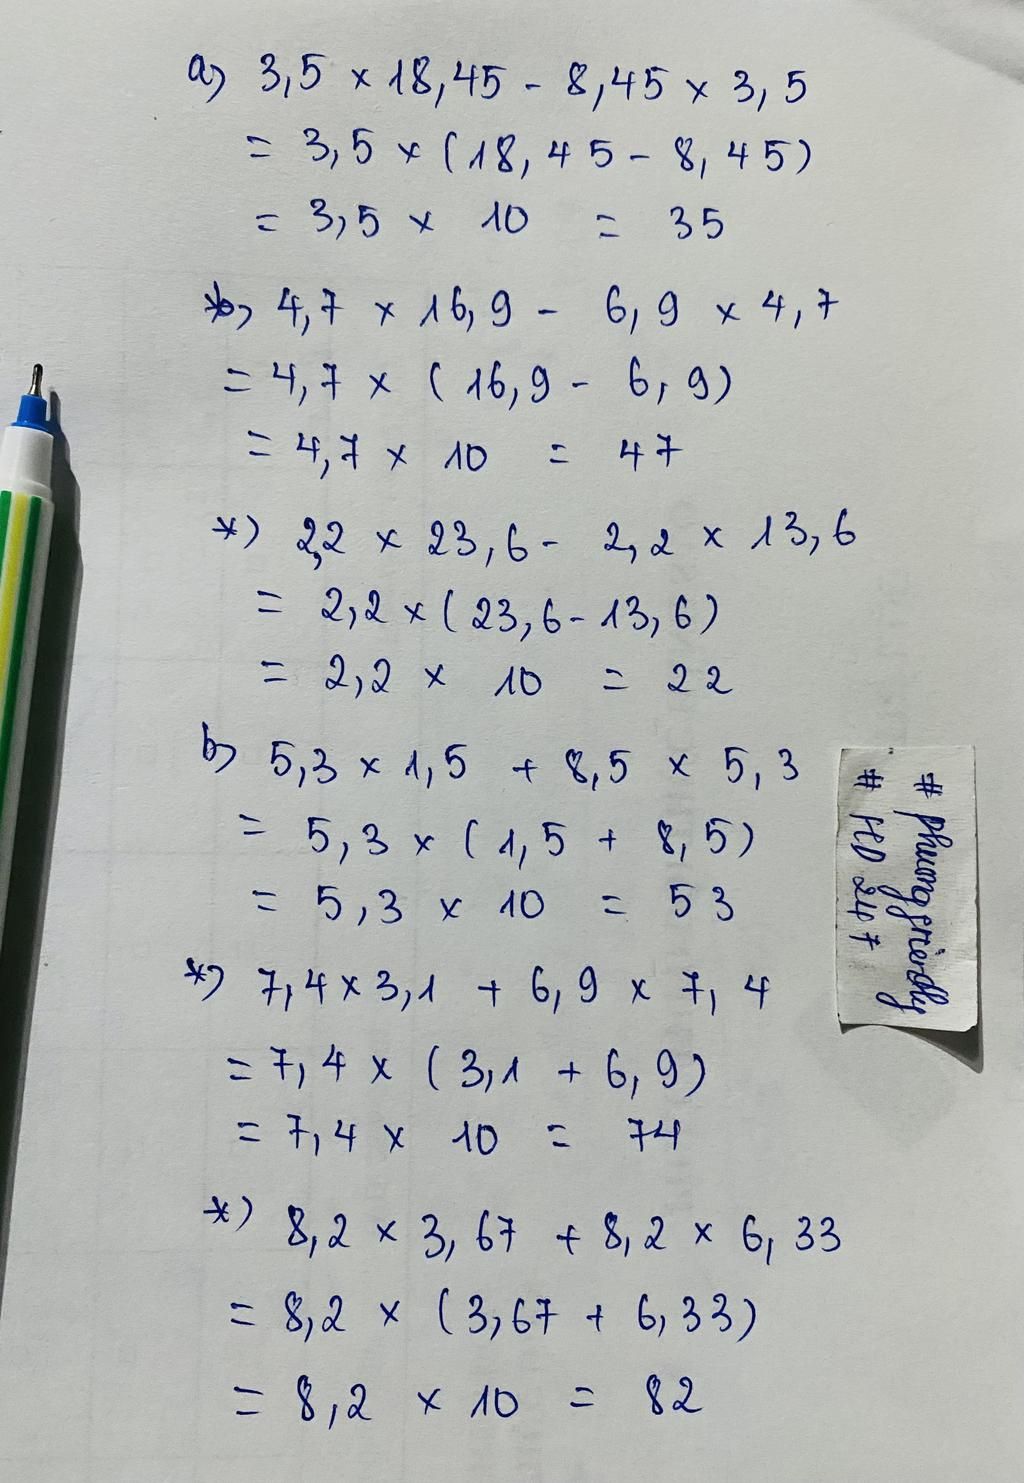 a) 3,5 × 18,45 - 8,45 × 3,5
= 3,5 × (18,45 - 8,45)
= 3,5 × 10 = 35
*) 4,7 × 16,9 - 6,9 × 4,7
= 4,7 × (16,9 - 6,9)
= 4,7 × 10 = 47
*) 2,2 × 23,6 - 2,2 × 13,6
= 2,2 × (23,6 - 13,6)
= 2,2 × 10 = 22
b) 5,3 × 1,5 + 8,5 × 5,3
= 5,3 × (1,5 + 8,5)
= 5,3 × 10 = 53
*) 7,4 × 3,1 + 6,9 × 7,4
= 7,4 × (3,1 + 6,9)
= 7,4 × 10 = 74
*) 8,2 × 3,67 + 8,2 × 6,33
= 8,2 × (3,67 + 6,33)
= 8,2 × 10 = 82
# phuongfriendly
# HD 247